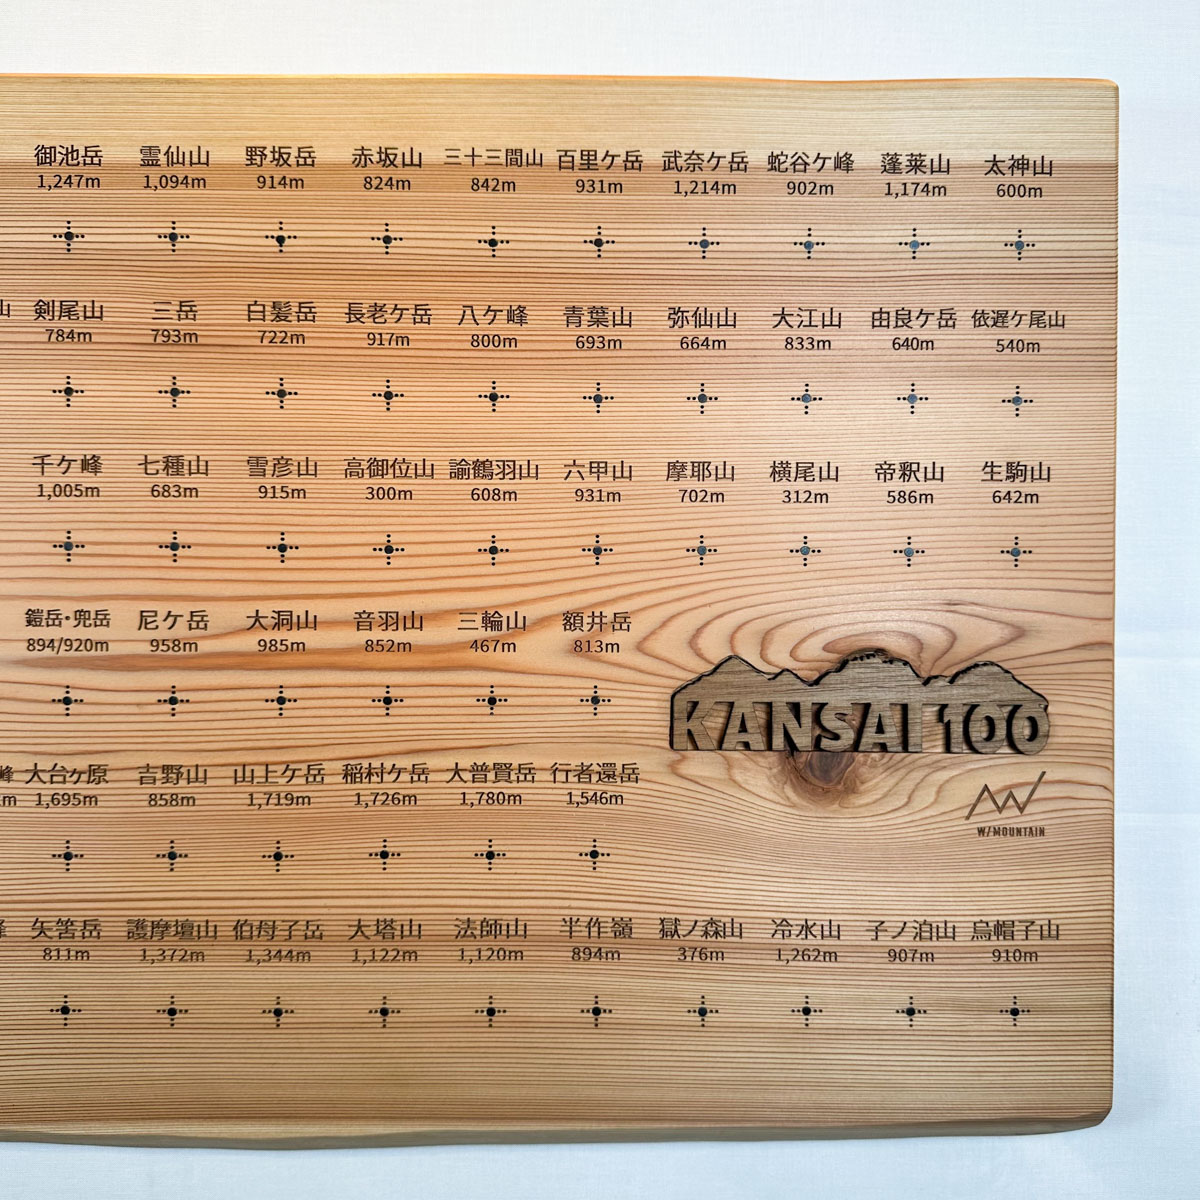 御池岳 霊仙山 野坂岳 赤坂山 三十三間山 百里ケ岳 武奈ケ岳 蛇谷ケ峰 蓬莱山 太神山
1,247m 1,094m 914m 824m 842m 931m 1,214m 902m 1,174m 600m
山 剣尾山 三岳 白髪岳 長老ケ岳 八ケ峰 青葉山 弥仙山 大江山 由良ケ岳 依遅ケ尾山
784m 793m 722m 917m 800m 693m 664m 833m 640m 540m
千ケ峰 七種山 雪彦山 高御位山 諭鶴羽山 六甲山 摩耶山 横尾山 帝釈山 生駒山
1,005m 683m 915m 300m 608m 931m 702m 312m 586m 642m
鎧岳・兜岳 尼ケ岳 大洞山 音羽山 三輪山 額井岳
894/920m 958m 985m 852m 467m 813m
KANSAI 100
峰 大台ヶ原 吉野山 山上ケ岳 稲村ケ岳 大普賢岳 行者還岳
m 1,695m 858m 1,719m 1,726m 1,780m 1,546m
W/MOUNTAIN
峰 矢筈岳 護摩壇山 伯母子岳 大塔山 法師山 半作嶺 獄ノ森山 冷水山 子ノ泊山 烏帽子山
811m 1,372m 1,344m 1,122m 1,120m 894m 376m 1,262m 907m 910m